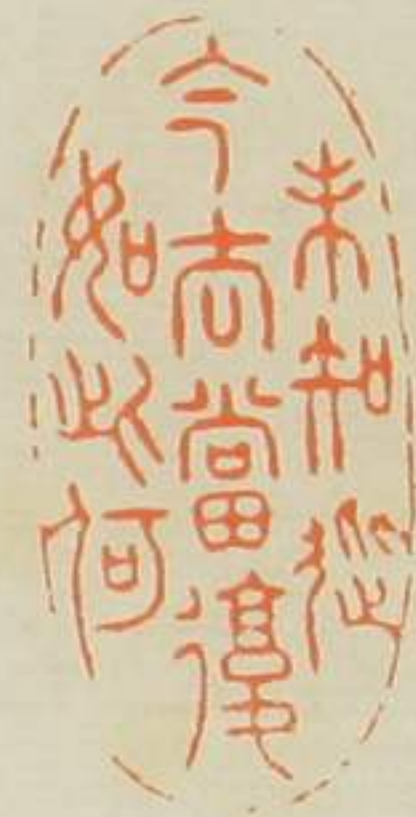 未知從
今去當復
如此何